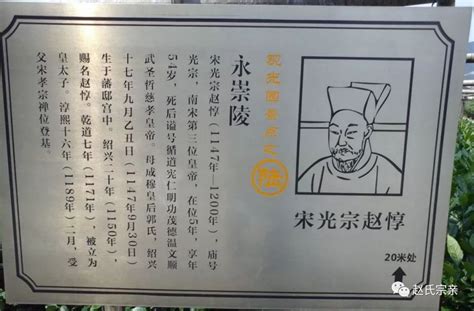 园景点之
陆
宋光宗赵惇
20米处
永崇陵
宋光宗赵惇（1147年—1200年），庙号
光宗，南宋第三位皇帝，在位5年，享年
54岁，死后谥号循道宪仁明功茂德温文顺
武圣哲慈孝皇帝。母成穆皇后郭氏，绍兴
十七年九月乙丑日（1147年9月30日）
生于藩邸宫中。绍兴二十年（1150年），
赐名赵惇。乾道七年（1171年），被立为
皇太子。淳熙十六年（1189年）二月，受
父宋孝宗禅位登基。
赵氏宗亲